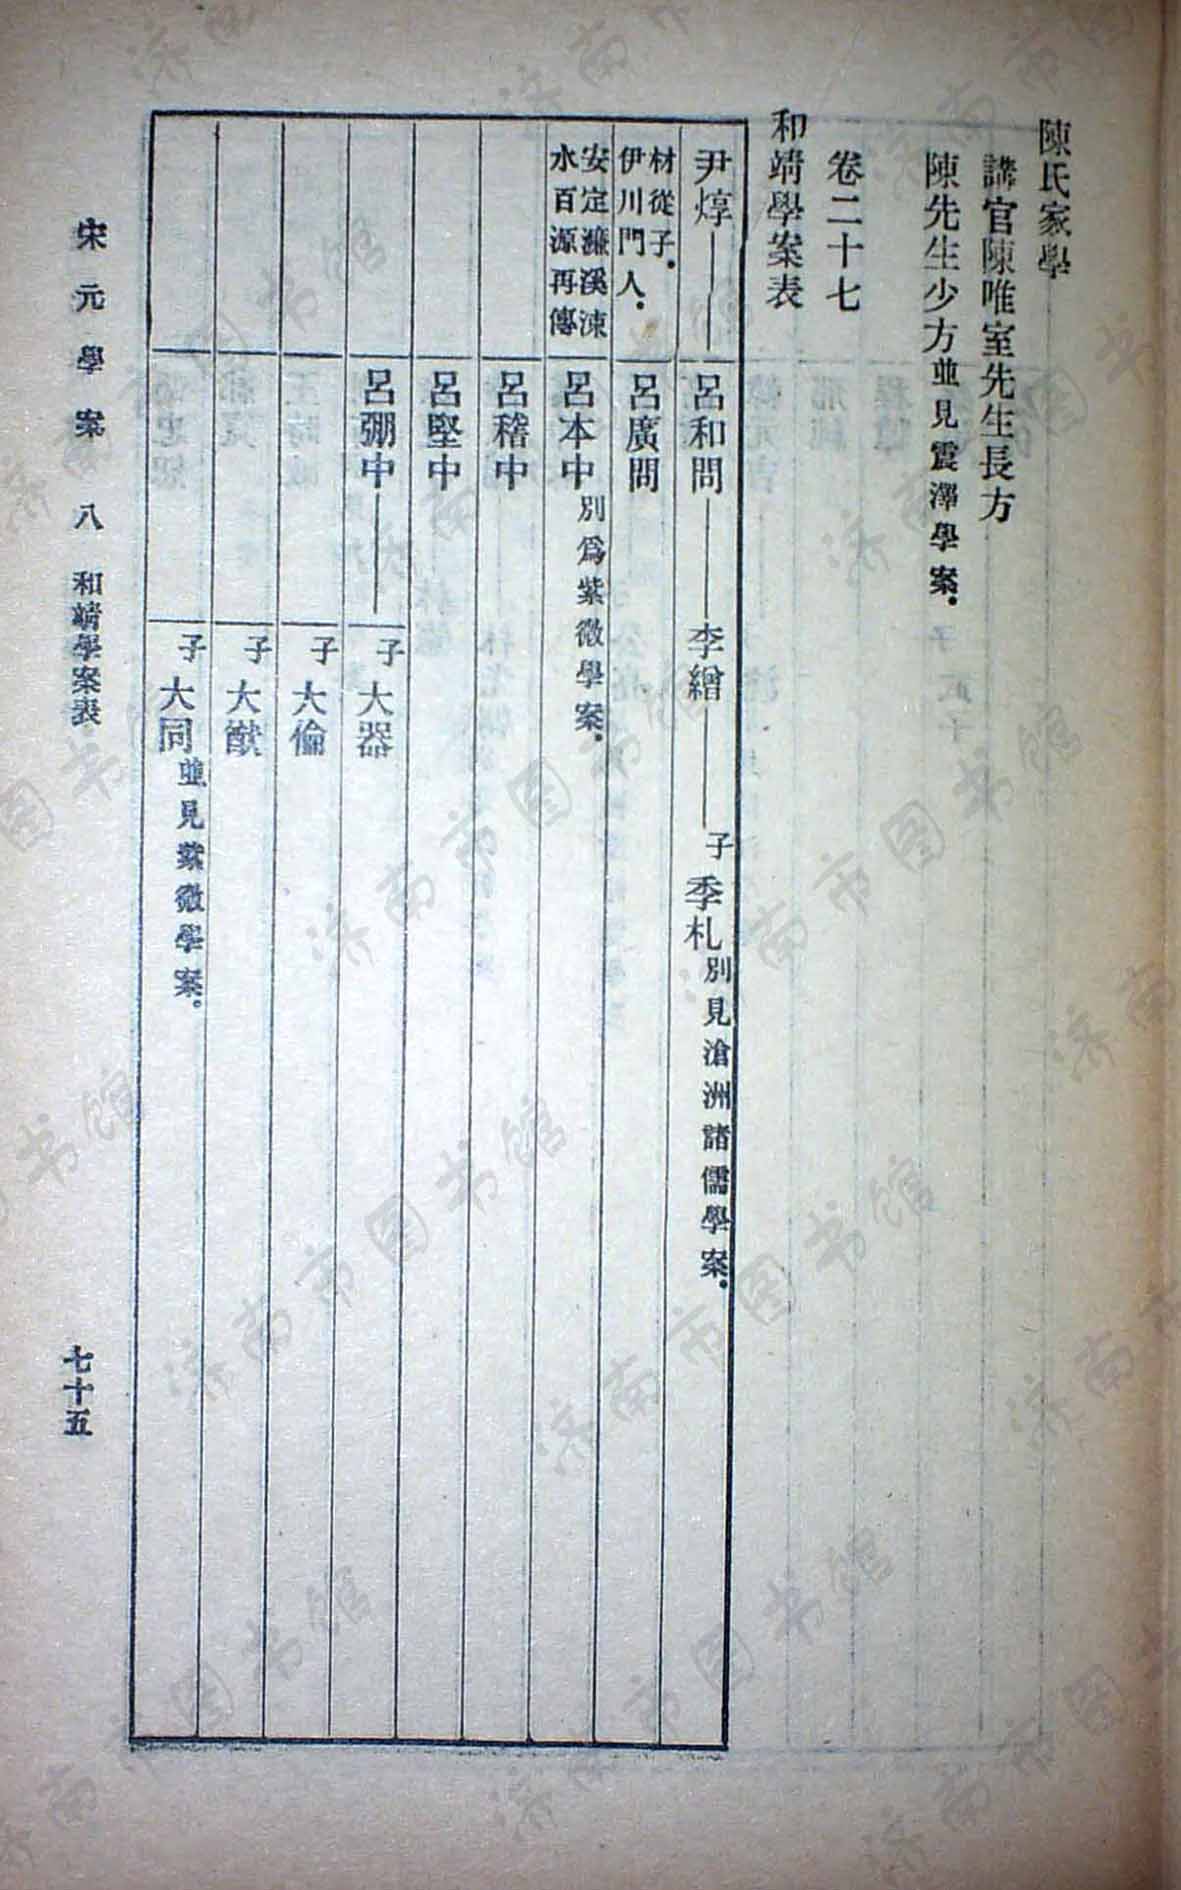 陳氏家學
講官陳唯室先生長方
陳先生少方並見震澤學案．
卷二十七
和靖學案表
尹焞
呂和問
李繒
子季札別見滄洲諸儒學案．
材從子．
伊川門人．
呂廣問
安定濂溪涑
水百源再傳
呂本中別爲紫微學案．
呂稽中
呂堅中
呂弸中
子大器
子大倫
子大猷
子大同並見紫微學案．
宋元學案 八 和靖學案表 七十五
济南市图书馆